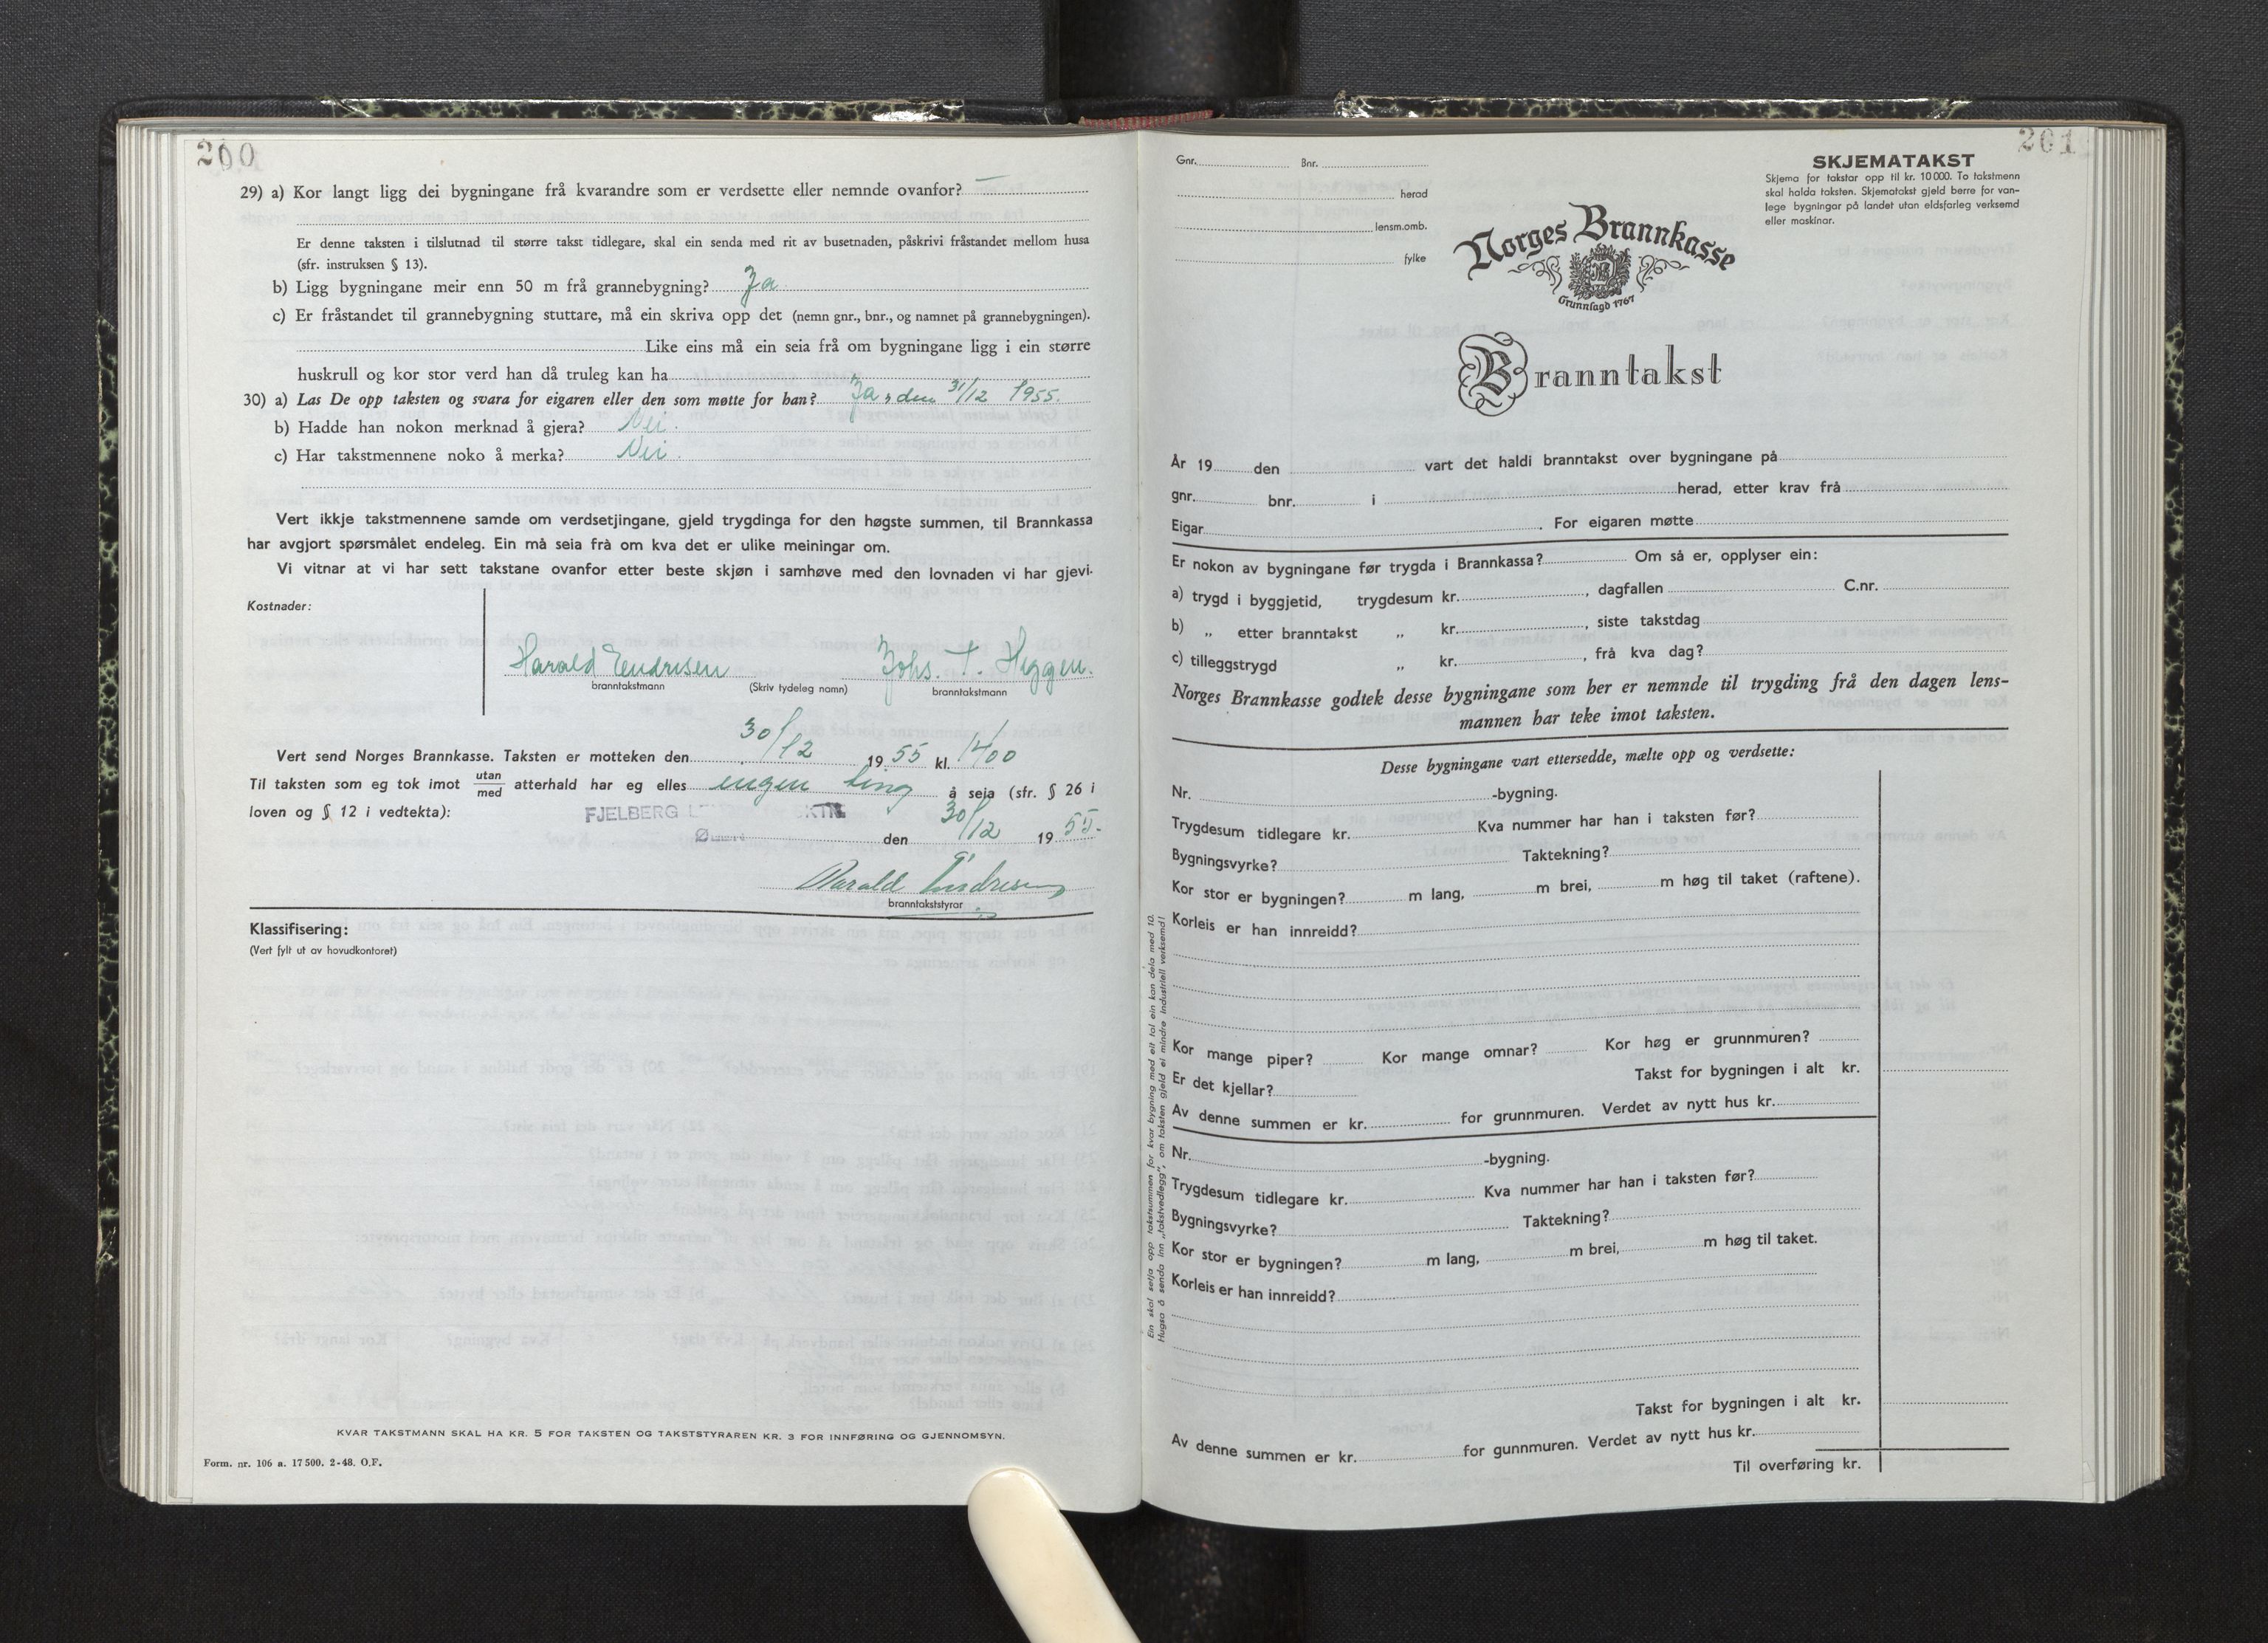 200
29) a) Kor langt ligg dei bygningane frå kvarandre som er verdsette eller nemnde ovanfor? —
Er denne taksten i tilslutnad til større takst tidlegare, skal ein senda med rit av busetnaden, påskrivi fråstandet mellom husa
(sfr. instruksen § 13).
b) Ligg bygningane meir enn 50 m frå grannebygning? Ja.
c) Er fråstandet til grannebygning stuttare, må ein skriva opp det (nemn gnr., bnr., og namnet på grannebygningen).
Like eins må ein seia frå om bygningane ligg i ein større
huskrull og kor stor verd han då truleg kan ha
30) a) Las De opp taksten og svara for eigaren eller den som møtte for han? Ja, den 31/12 1955.
b) Hadde han nokon merknad å gjera? Nei.
c) Har takstmennene noko å merka? Nei.
Vert ikkje takstmennene samde om verdsetjingane, gjeld trygdinga for den høgste summen, til Brannkassa
har avgjort spørsmålet endeleg. Ein må seia frå om kva det er ulike meiningar om.
Vi vitnar at vi har sett takstane ovanfor etter beste skjøn i samhøve med den lovnaden vi har gjevi.
Kostnader:
Harald Endresen Johs. T. Heggen.
branntakstmann (Skriv tydeleg namn) branntakstmann
Vert send Norges Brannkasse. Taksten er motteken den 30/12 1955 kl. 1400
Til taksten som eg tok imot utan/med atterhald har eg elles ingen ting å seia (sfr. § 26 i
loven og § 12 i vedtekta):
FJELBERG
den 30/12 1955.
Harald Endresen
branntakststyrar
Klassifisering:
(Vert fylt ut av hovudkontoret)
KVAR TAKSTMANN SKAL HA KR. 5 FOR TAKSTEN OG TAKSTSTYRAREN KR. 3 FOR INNFØRING OG GJENNOMSYN.
Form. nr. 106 a. 17 500. 2-48. O.F.
201
Gnr. Bnr.
herad
lensm.omb.
fylke
SKJEMATAKST
Skjema for takstar opp til kr. 10 000. To takstmenn
skal halda taksten. Skjematakst gjeld berre for van-
lege bygningar på landet utan eldsfarleg verksemd
eller maskinar.
Norges Brannkasse
Grunnlagd 1767
Branntakst
År 19 den vart det haldi branntakst over bygningane på
gnr. bnr. i herad, etter krav frå
Eigar. For eigaren møtte
Er nokon av bygningane før trygda i Brannkassa? Om så er, opplyser ein:
a) trygd i byggjetid, trygdesum kr. , dagfallen C.nr.
b) „ etter branntakst „ kr. , siste takstdag
c) tilleggstrygd „ kr. , frå kva dag?
Norges Brannkasse godtek desse bygningane som her er nemnde til trygding frå den dagen lens-
mannen har teke imot taksten.
Desse bygningane vart ettersedde, mælte opp og verdsette:
Nr. -bygning.
Trygdesum tidlegare kr. Kva nummer har han i taksten før?
Bygningsvyrke? Taktekning?
Kor stor er bygningen? m lang, m brei, m høg til taket (raftene).
Korleis er han innreidd?
Kor mange piper? Kor mange omnar? Kor høg er grunnmuren?
Er det kjellar? Takst for bygningen i alt kr.
Av denne summen er kr. for grunnmuren. Verdet av nytt hus kr.
Nr. -bygning.
Trygdesum tidlegare kr. Kva nummer har han i taksten før?
Bygningsvyrke? Taktekning?
Kor stor er bygningen? m lang, m brei, m høg til taket.
Korleis er han innreidd?
Takst for bygningen i alt kr.
Av denne summen er kr. for gunnmuren. Verdet av nytt hus kr.
Til overføring kr.
Ein skal setja opp takstsummen for kvar bygning med eit tal ein kan dela med 10.
Hugsa å senda inn „takstvedlegg", om taksten gjeld ei mindre industriell verksemd!